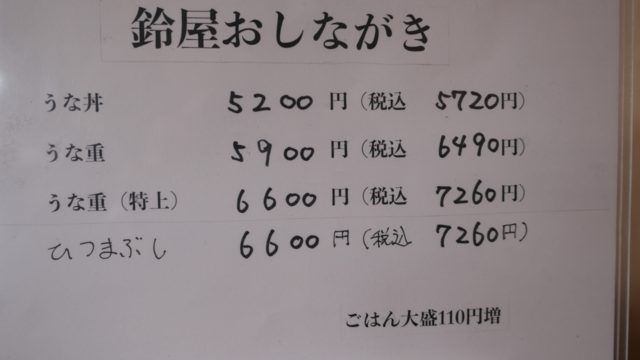 鈴屋おしながき
うな丼 5200円(税込 5720円)
うな重 5900円(税込 6490円)
うな重(特上) 6600円(税込 7260円)
ひつまぶし 6600円(税込 7260円)
ごはん大盛110円増